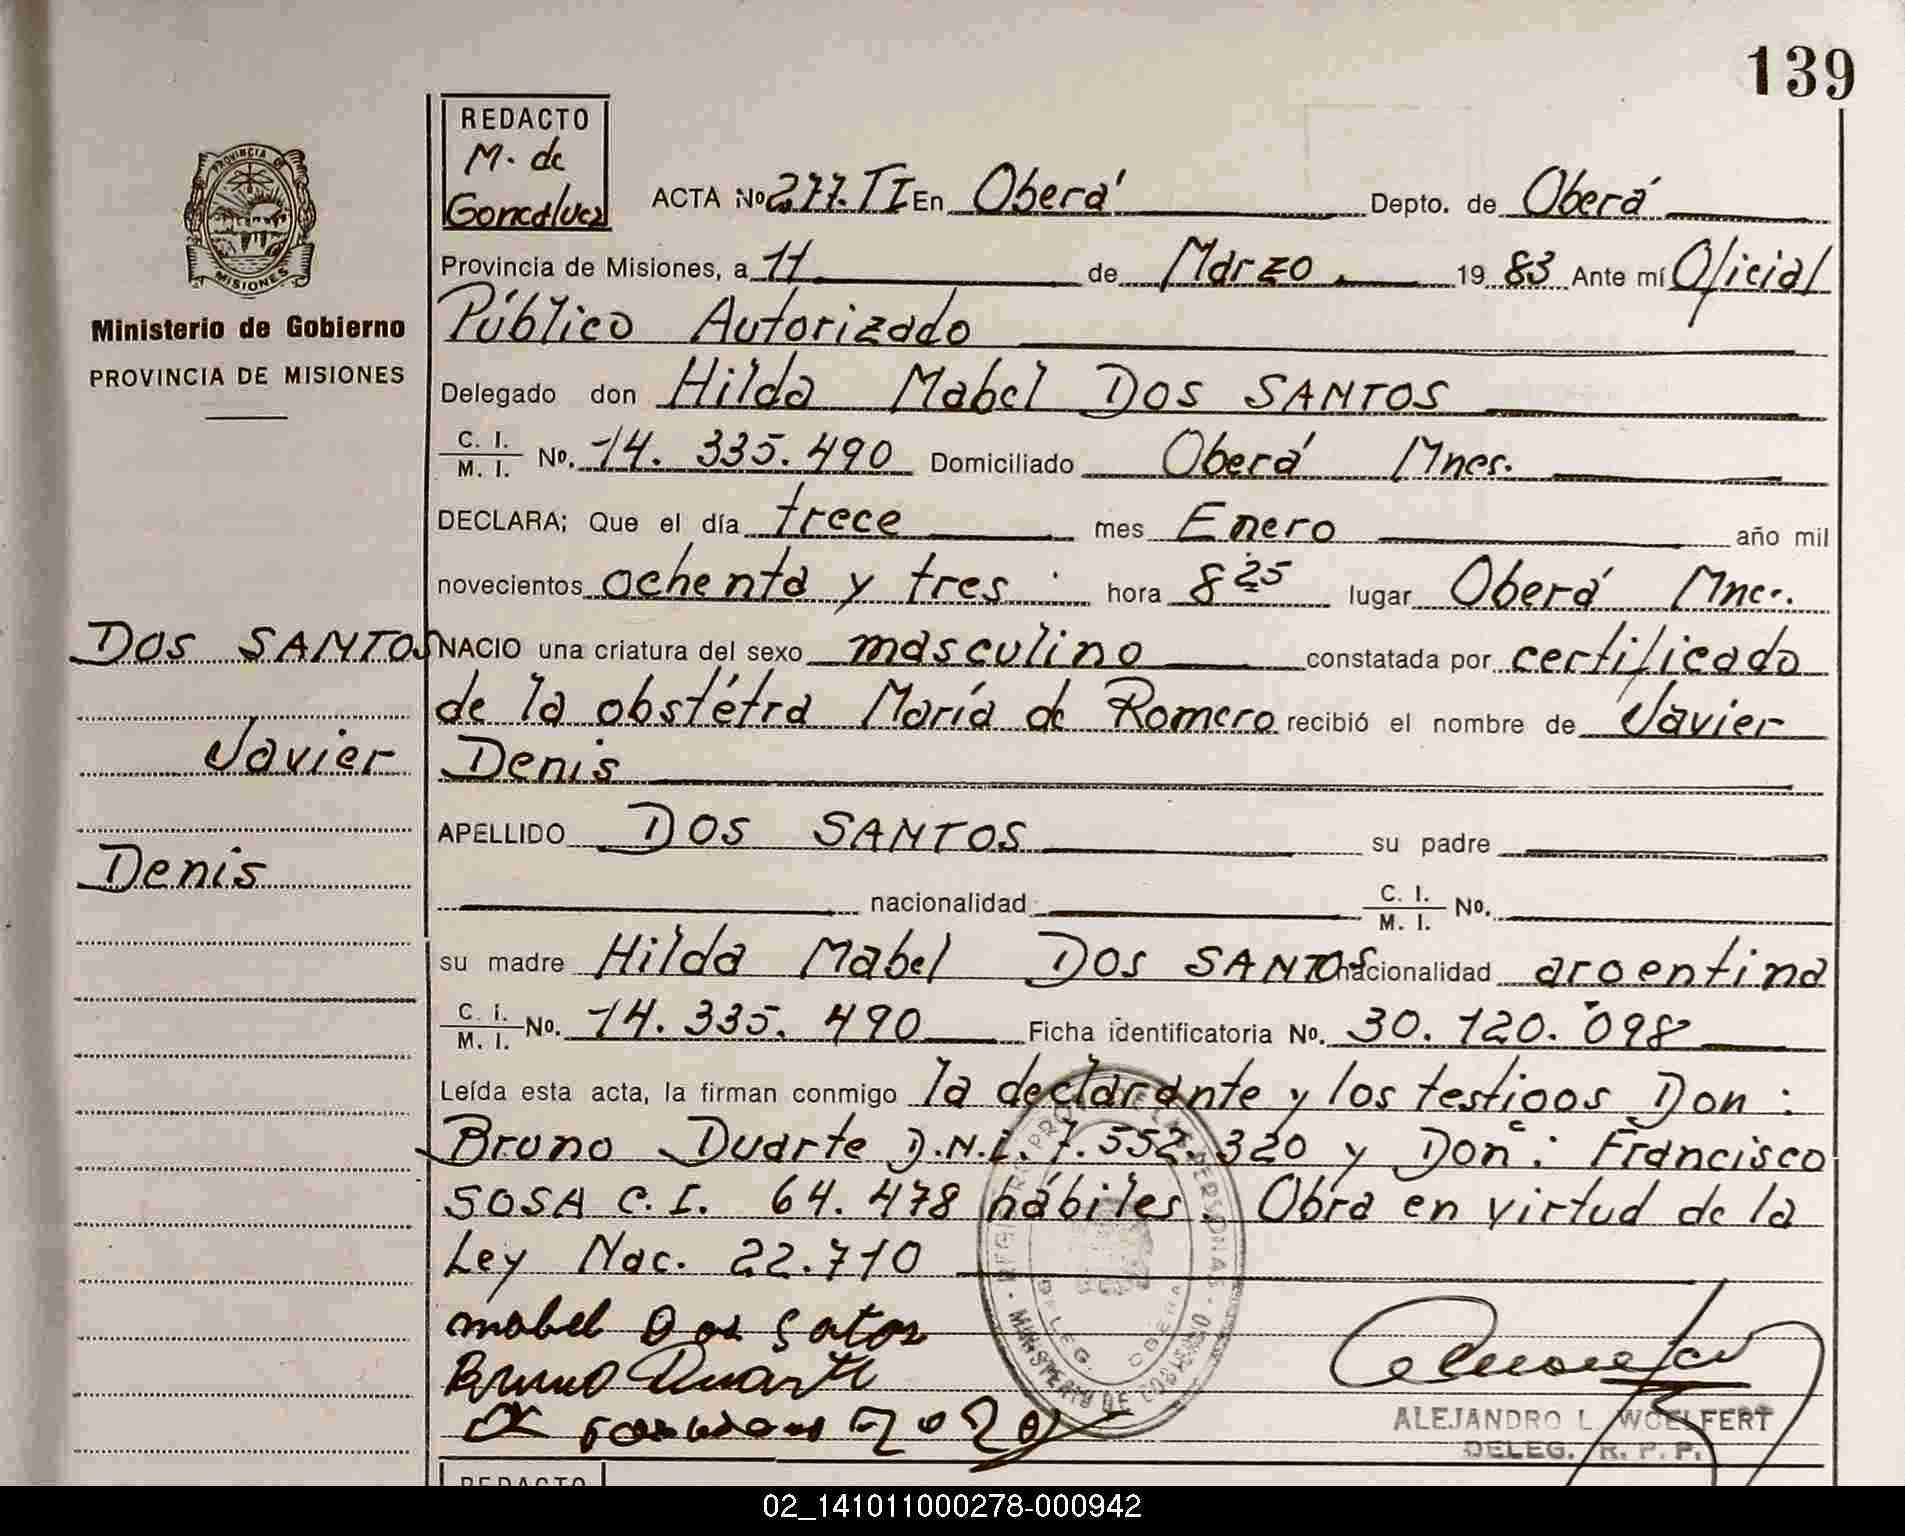 139
REDACTO
M. de
Goncalvez
ACTA Nº 277. TI En Oberá Depto. de Oberá
Provincia de Misiones, a 11 de Marzo. 19 83 Ante mí Oficial
Público Autorizado
Delegado don Hilda Mabel DOS SANTOS
C. I. / M. I. Nº. 14. 335. 490 Domiciliado Oberá Mnes.
DECLARA; Que el día trece mes Enero año mil
novecientos ochenta y tres. hora 8 25 lugar Oberá Mnes.
NACIO una criatura del sexo masculino constatada por certificado
de la obstétra María de Romero recibió el nombre de Javier
Denis
APELLIDO DOS SANTOS su padre
nacionalidad C. I. / M. I. Nº.
su madre Hilda Mabel DOS SANTOS nacionalidad argentina
C. I. / M. I. Nº. 14. 335. 490 Ficha identificatoria Nº. 30. 120. 098
Leída esta acta, la firman conmigo la declarante y los testigos Don:
Bruno Duarte D.N.I. 7.552.320 y Don: Francisco
SOSA C.I. 64.478 hábiles. Obra en virtud de la
Ley Nac. 22.710
mabel Dos Satos
Bruno Duarte
ALEJANDRO L. WOELFERT
DELEG. R. P. P.
PROVINCIA DE
MISIONES
Ministerio de Gobierno
PROVINCIA DE MISIONES
DOS SANTOS
Javier
Denis
DELEG. OBERA
MINISTERIO DE GOBIERNO
REDACTO
02_141011000278-000942